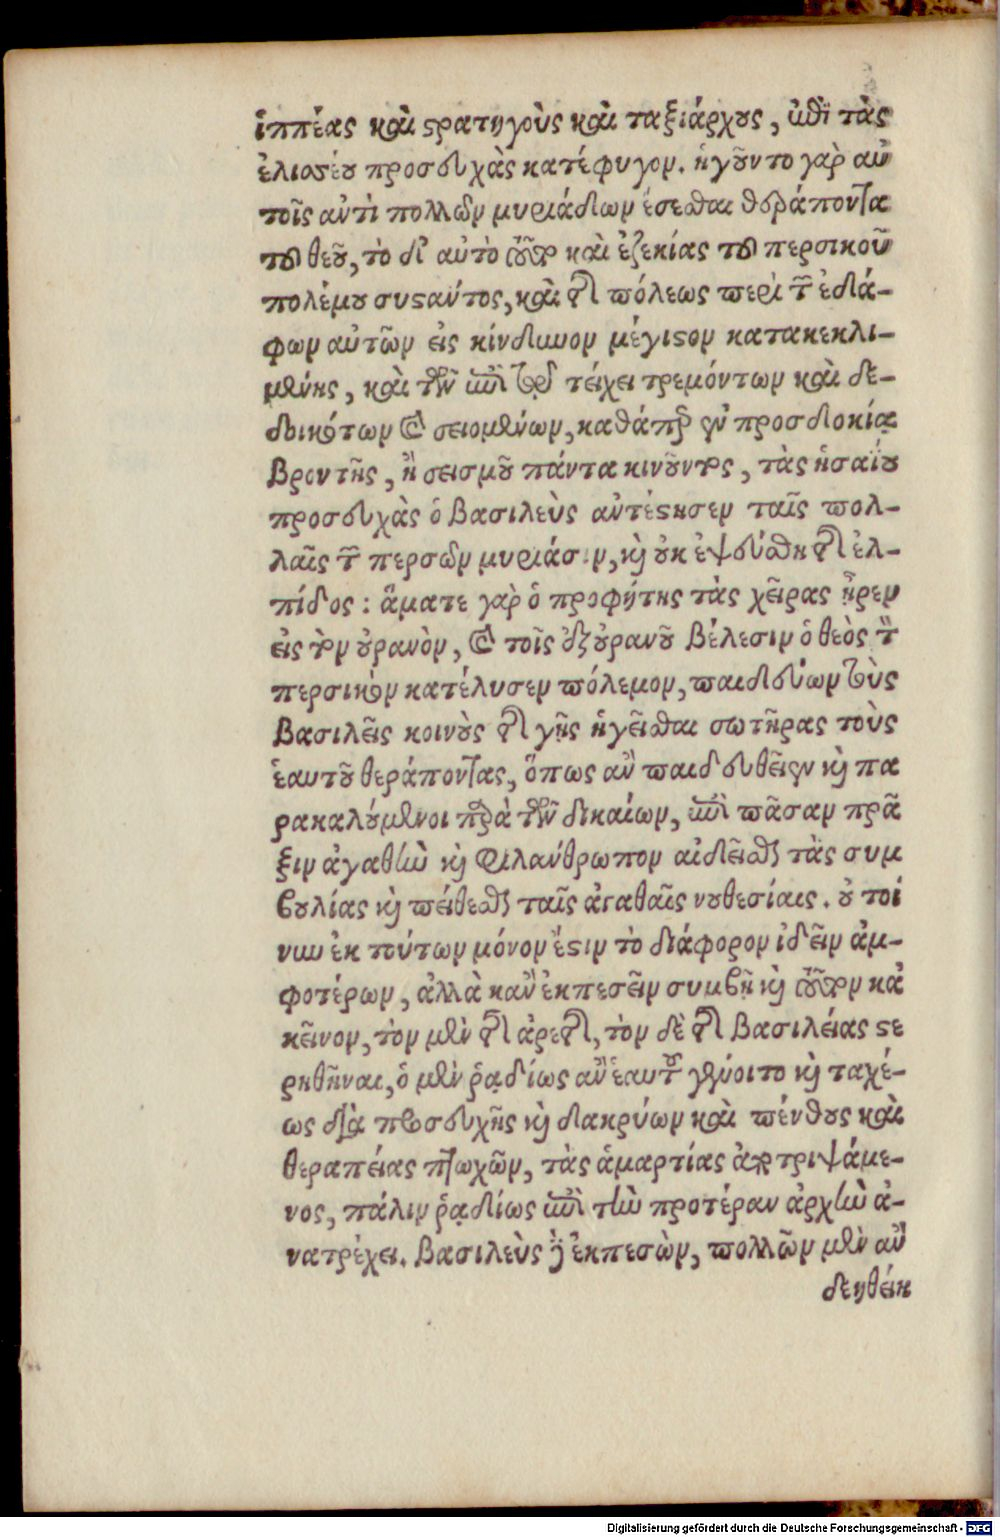 ἱππέας καὶ στρατηγοὺς καὶ ταξιάρχους, ἐπὶ τὰς
ἐλισσέου προσευχὰς κατέφυγον. ἡγοῦντο γὰρ αὐ
τοῖς ἀντὶ πολλῶν μυριάδων ἔσεσθαι θεράποντα
τοῦ θεοῦ, τὸ δι' αὐτὸ τοῦτο καὶ ἐζεκίας τοῦ περσικοῦ
πολέμου συστάντος, καὶ τῆς πόλεως περὶ τῶν ἐδά-
φων αὐτῶν εἰς κίνδυνον μέγιστον κατακεκλι-
μένης, καὶ τῶν ἐπὶ τοῦ τείχει τρεμόντων καὶ δε-
δοικότων καὶ σειομένων, καθάπερ ἐν προσδοκίᾳ
βροντῆς, ἢ σεισμοῦ πάντα κινοῦντος, τὰς ἡσαΐου
προσευχὰς ὁ βασιλεὺς ἀντέστησεν ταῖς πολ-
λαῖς τῶν περσῶν μυριάσιν, καὶ οὐκ ἐψεύσθη τῆς ἐλ-
πίδος: ἅμα τε γὰρ ὁ προφήτης τὰς χεῖρας ᾖρεν
εἰς τὸν οὐρανὸν, καὶ τοῖς ἐξ οὐρανοῦ βέλεσιν ὁ θεὸς τὸν
περσικὸν κατέλυσεν πόλεμον, παιδεύων τοὺς
βασιλεῖς κοινοὺς τῆς γῆς ἡγεῖσθαι σωτῆρας τοὺς
ἑαυτοῦ θεράποντας, ὅπως ἂν παιδευθεῖεν καὶ πα
ρακαλούμενοι παρὰ τῶν δικαίων, ἐπὶ πᾶσαν πρᾶ
ξιν ἀγαθὴν καὶ φιλάνθρωπον αἰδεῖσθαι τὰς συμ
βουλίας καὶ πείθεσθαι ταῖς ἀγαθαῖς νουθεσίαις. οὐ τοί
νυν ἐκ τούτων μόνον ἔστιν τὸ διάφορον ἰδεῖν ἀμ-
φοτέρων, ἀλλὰ κἂν ἐκπεσεῖν συμβῇ καὶ τοῦτον κἀ
κεῖνον, τὸν μὲν τῆς ἀρετῆς, τὸν δὲ τῆς βασιλείας στε
ρηθῆναι, ὁ μὲν ῥᾳδίως ἂν ἑαυτοῦ γένοιτο καὶ ταχέ-
ως διὰ προσευχῆς καὶ δακρύων καὶ πένθους καὶ
θεραπείας πτωχῶν, τὰς ἁμαρτίας ἀποτριψάμε-
νος, πάλιν ῥᾳδίως ἐπὶ τὴν προτέραν ἀρχὴν ἀ-
νατρέχει. βασιλεὺς δὲ ἐκπεσὼν, πολλῶν μὲν ἂν
δεηθείη
Digitalisierung gefördert durch die Deutsche Forschungsgemeinschaft - DFG